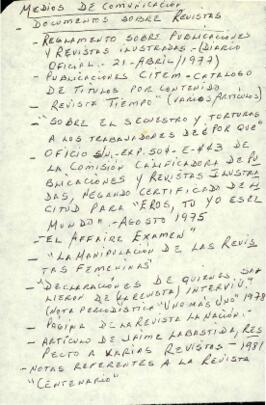 MEDIOS DE COMUNICACIÓN
- DOCUMENTOS SOBRE REVISTAS
- REGLAMENTO SOBRE PUBLICACIONES
Y REVISTAS ILUSTRADAS.- (DIARIO
OFICIAL.- 21-ABRIL/1977)
- PUBLICACIONES CITEM - CATALOGO
DE TITULOS POR CONTENIDO
- REVISTA TIEMPO" (VARIOS ARTÍCULOS)
"SOBRE EL SECUESTRO Y TORTURAS
A LOS TRABAJADORES DE ¿POR QUÉ"
- OFICIO S/N.- EXP. 504-E-#43 DE
LA COMISIÓN CALIFICADORA DE PU
BLICACIONES Y REVISTAS ILUSTRA
DAS, NEGANDO CERTIFICADO DE LI
CITUD PARA "EROS, TU YO ES EL
MUNDO".- AGOSTO 1975
- "EL AFFAIRE EXAMEN"
- "LA MANIPULACIÓN DE LAS REVIS
TAS FEMENINAS"
- "DECLARACIONES DE QUIENES SA
LIERON DE LA REVISTA, INTERVIÚ".
(NOTA PERIODÍSTICA "UNO MÁS UNO" 1978
- PÁGINA DE LA REVISTA LA NACIÓN.-
- ARTÍCULO DE JAIME LABASTIDA, RES
PECTO A VARIAS REVISTAS - 1981
- NOTAS REFERENTES A LA REVISTA
"CENTENARIO"